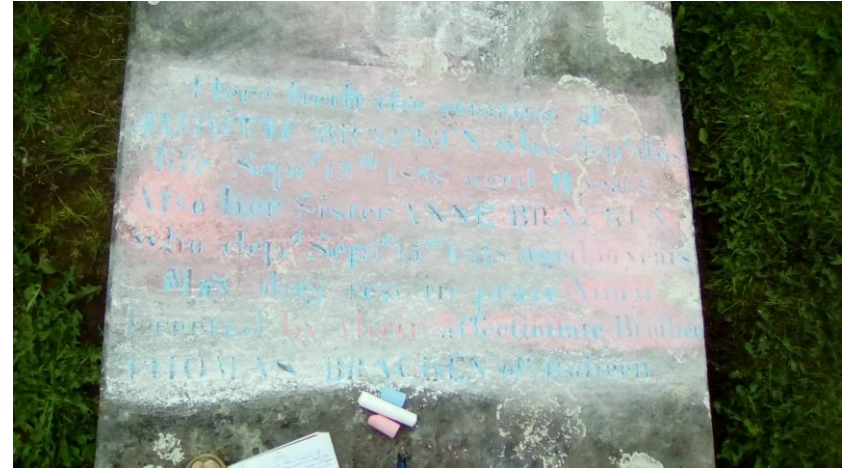 Here lieth the remains of
JUDITH BRACKEN who dep.d this
life Sept.r 13th aged years
Also her Sister ANNE BRACKEN
who dep.d Sept.r aged years
May they rest in peace Amen
Erected by their affectionate Brother
THOMAS BRACKEN of